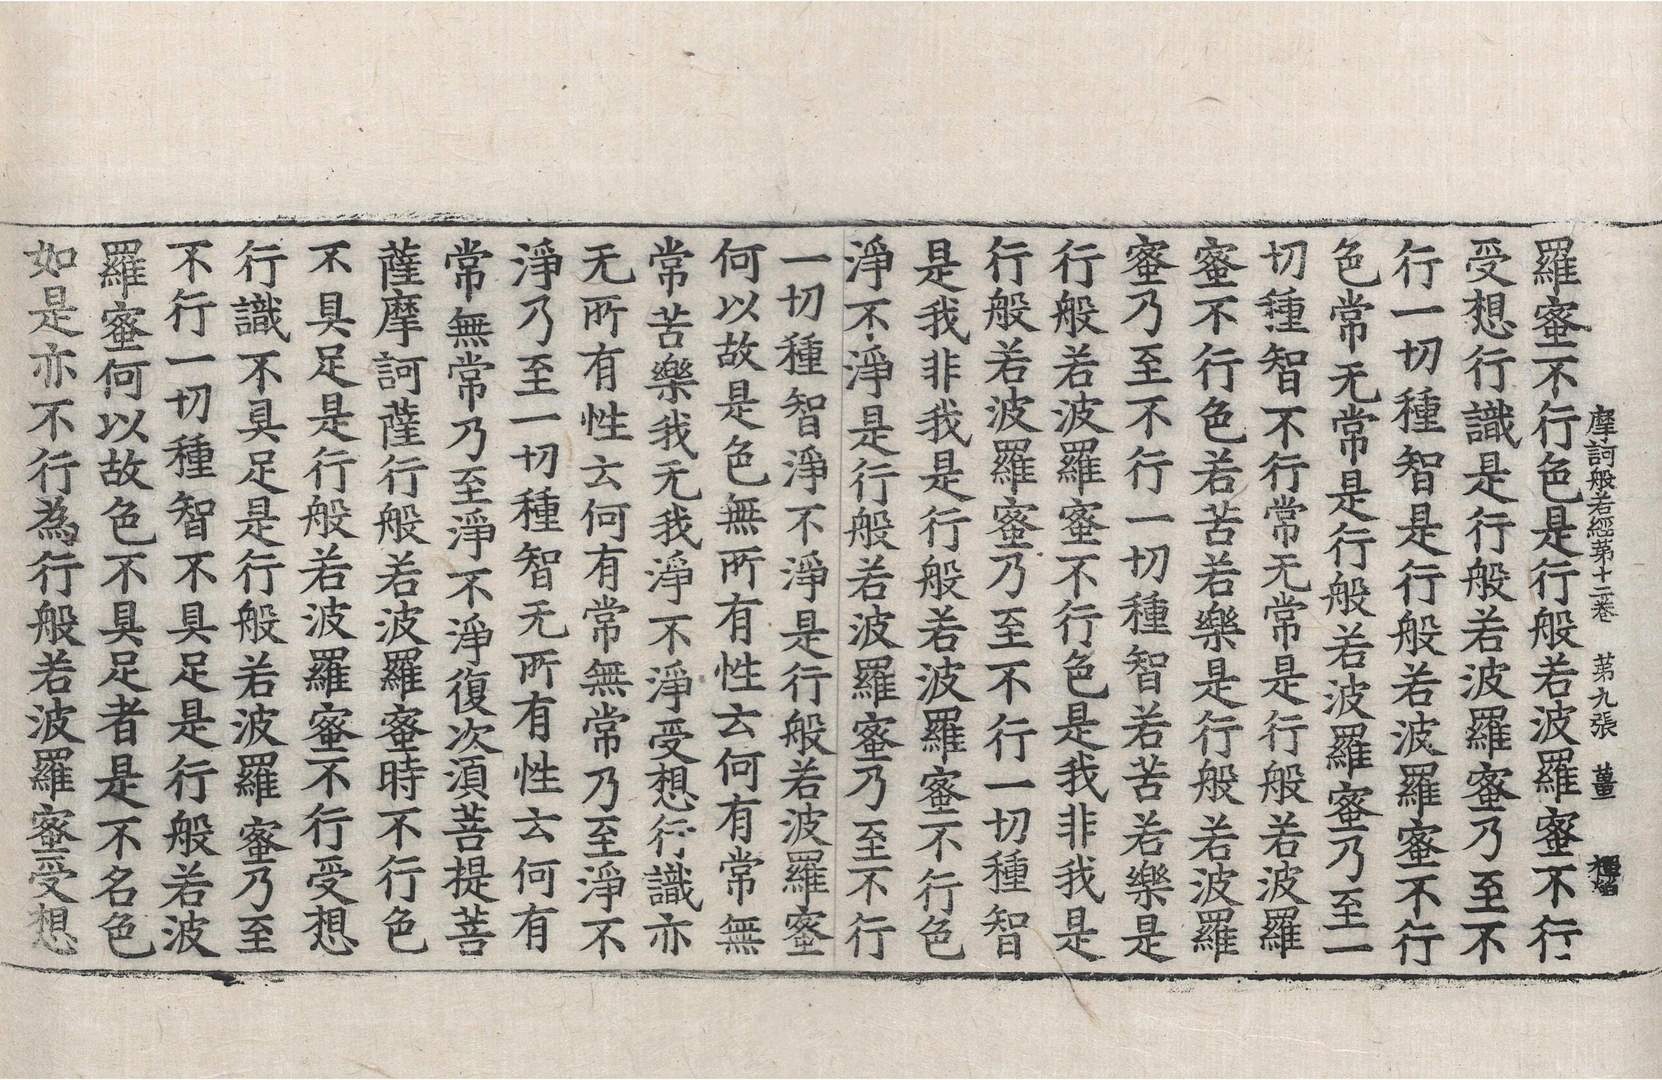 摩訶般若經苐十二卷　苐九張　薑
羅蜜不行色是行般若波羅蜜不行
受想行識是行般若波羅蜜乃至不
行一切種智是行般若波羅蜜不行
色常无常是行般若波羅蜜乃至一
切種智不行常无常是行般若波羅
蜜不行色若苦若樂是行般若波羅
蜜乃至不行一切種智若苦若樂是
行般若波羅蜜不行色是我非我是
行般若波羅蜜乃至不行一切種智
是我非我是行般若波羅蜜不行色
淨不淨是行般若波羅蜜乃至不行
一切種智淨不淨是行般若波羅蜜
何以故是色無所有性云何有常無
常苦樂我无我淨不淨受想行識亦
无所有性云何有常無常乃至淨不
淨乃至一切種智无所有性云何有
常無常乃至淨不淨復次須菩提菩
薩摩訶薩行般若波羅蜜時不行色
不具足是行般若波羅蜜不行受想
行識不具足是行般若波羅蜜乃至
不行一切種智不具足是行般若波
羅蜜何以故色不具足者是不名色
如是亦不行為行般若波羅蜜受想